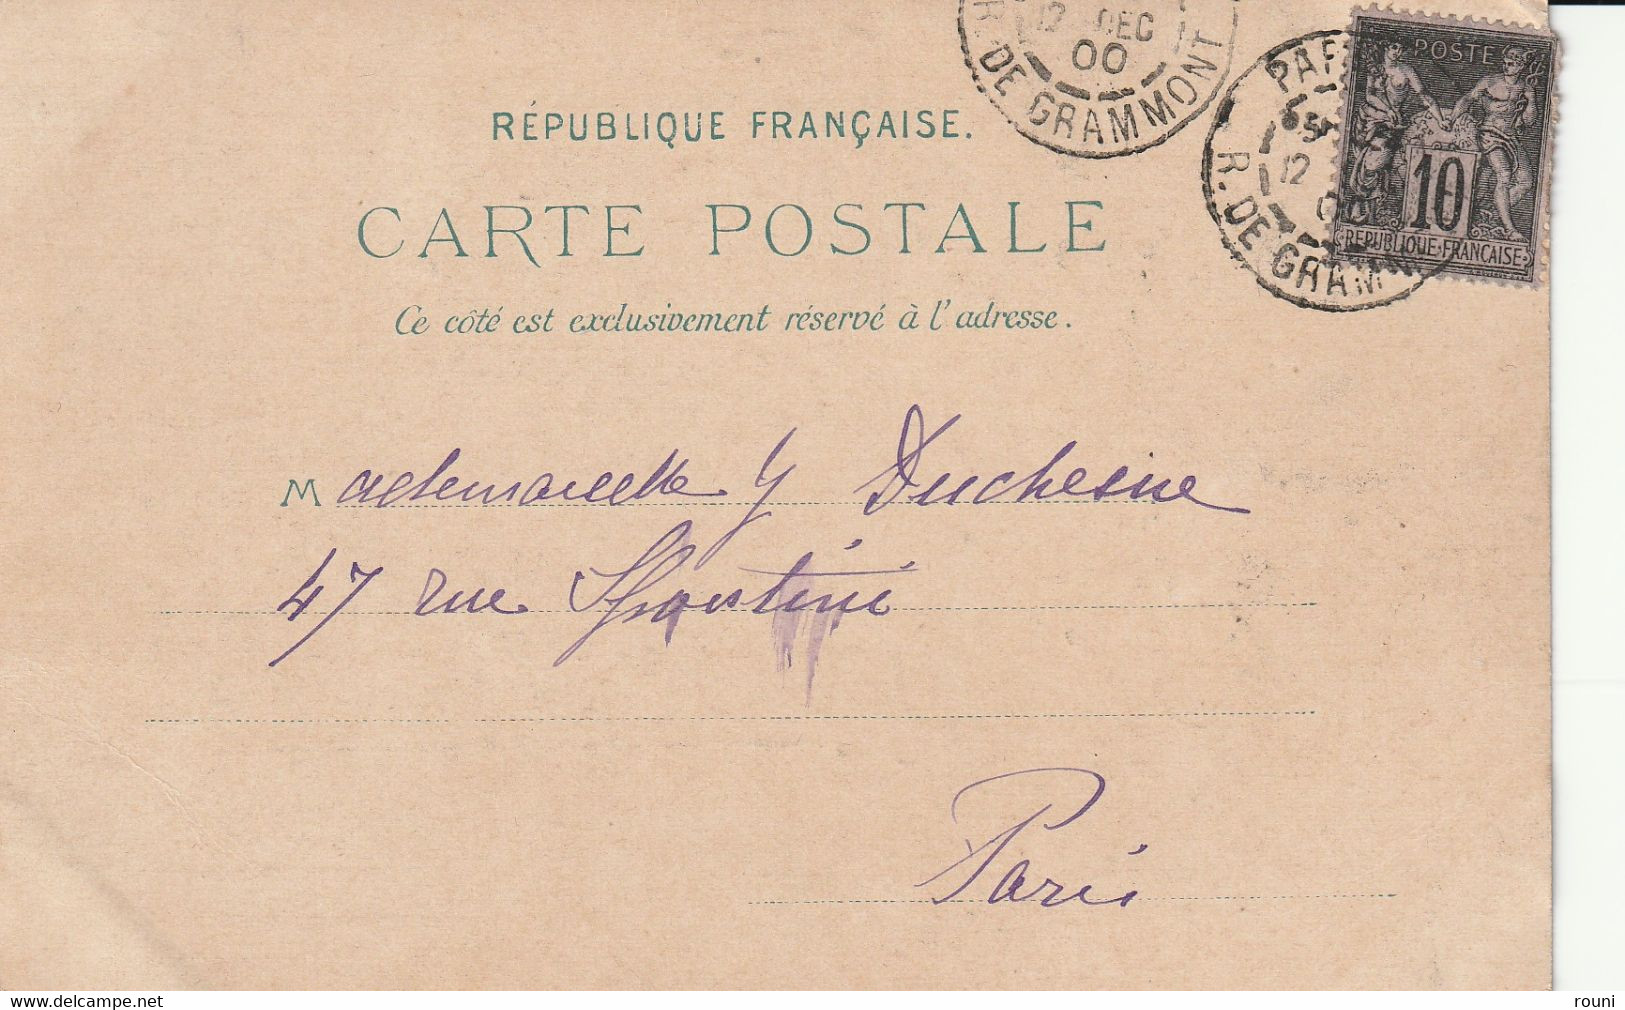 12 DEC
00
R. DE GRAMMONT
PAR
12
R. DE GRAMM
POSTE
10
REPUBLIQUE FRANÇAISE
RÉPUBLIQUE FRANÇAISE.
CARTE POSTALE
Ce côté est exclusivement réservé à l'adresse.
Mademoiselle Y Duchesne
47 rue Spontini
Paris
delcampe.net
rouni